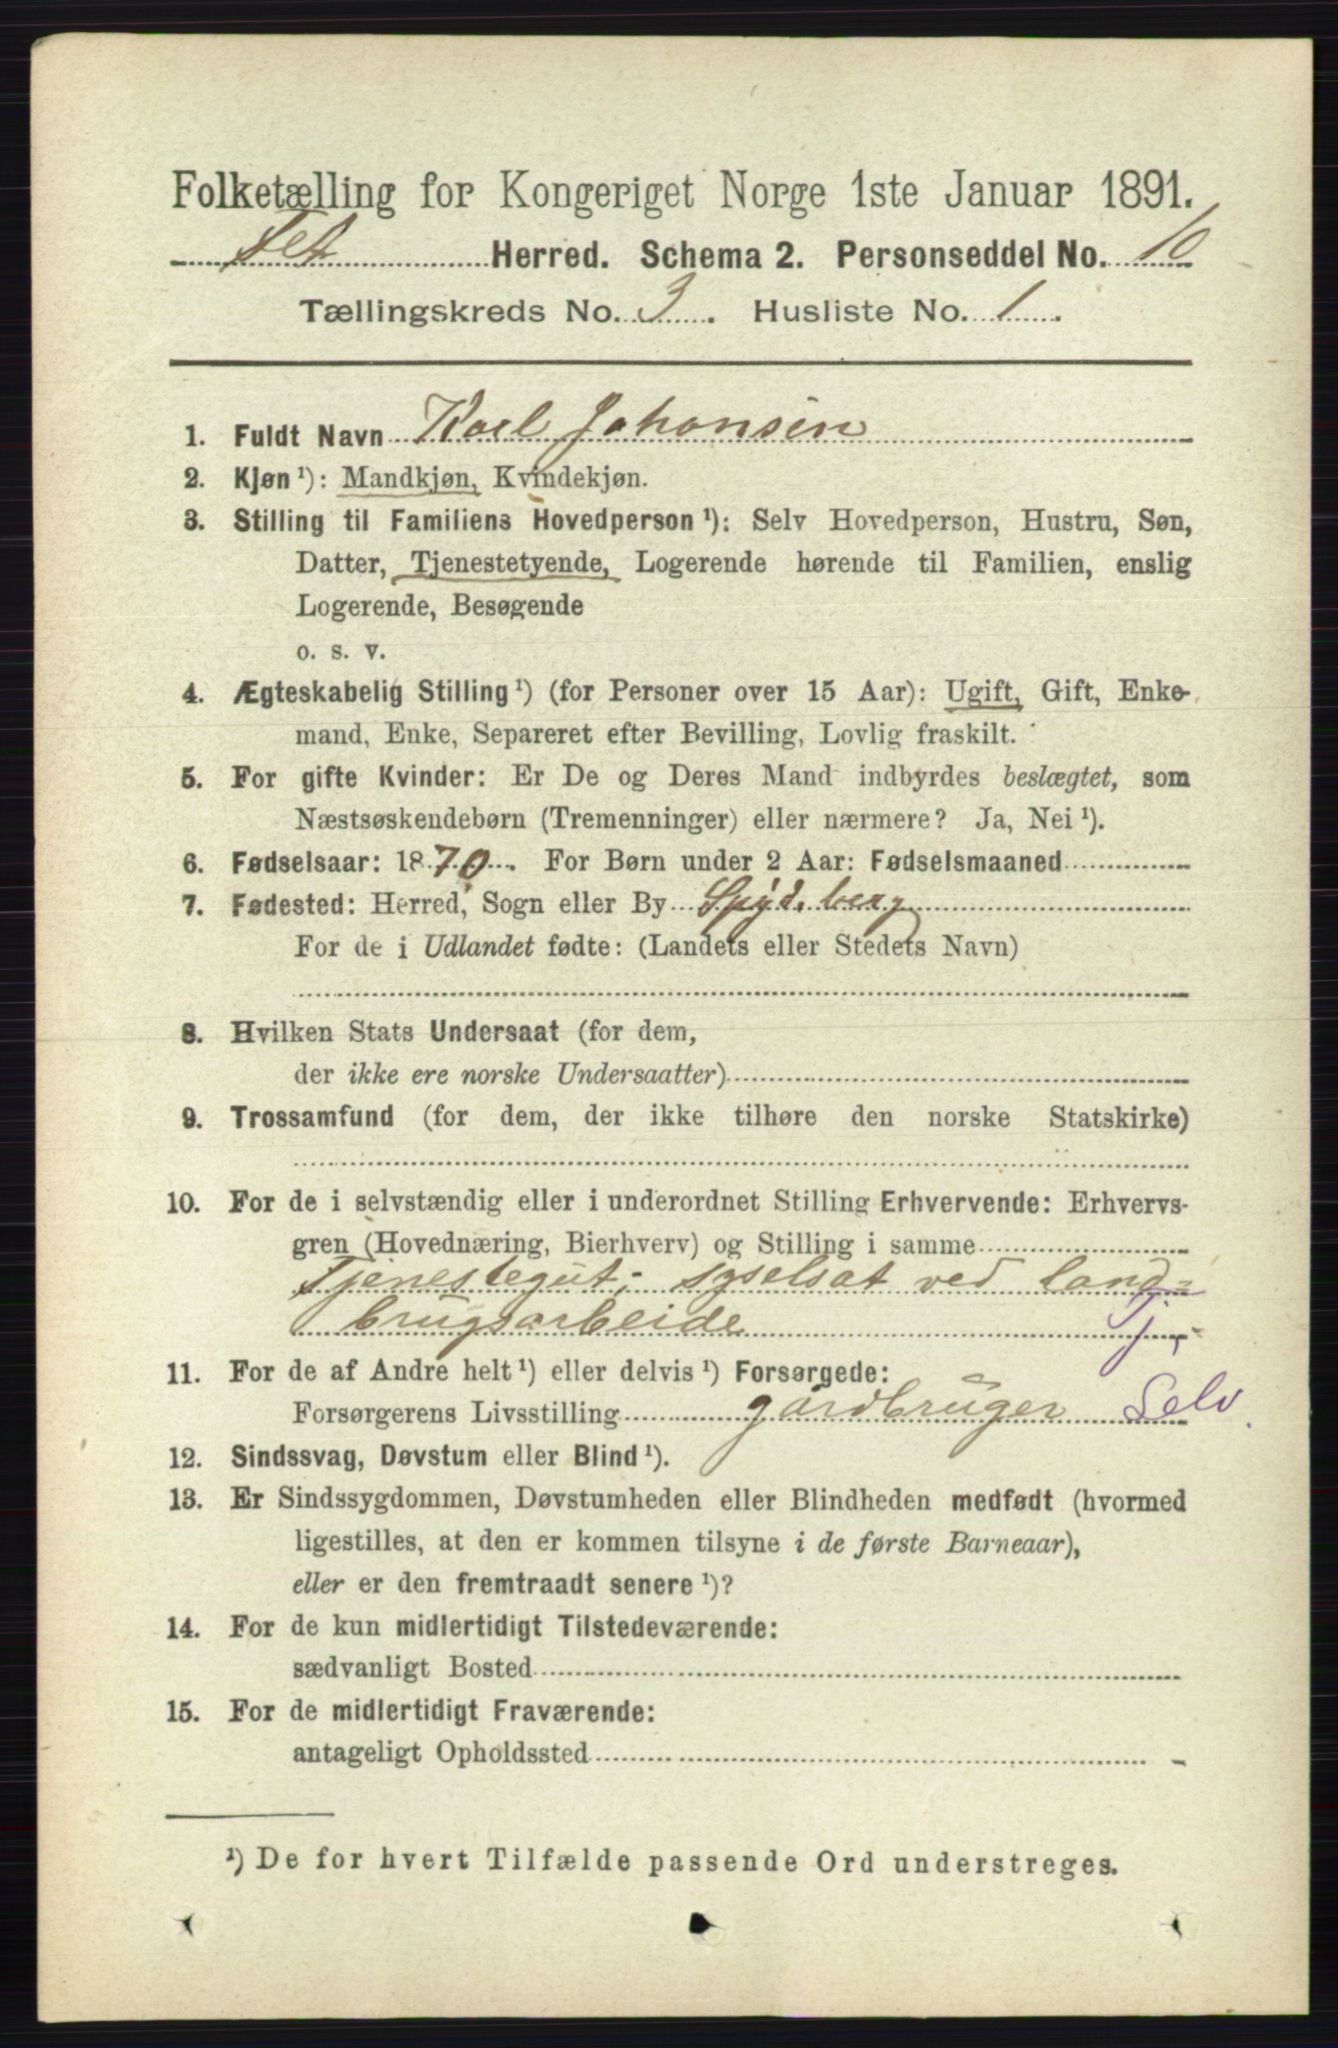 Folketælling for Kongeriget Norge 1ste Januar 1891.
Fet Herred. Schema 2. Personseddel No. 10
Tællingskreds No. 3. Husliste No. 1.
1. Fuldt Navn Karl Johansen
2. Kjøn ¹): Mandkjøn, Kvindekjøn.
3. Stilling til Familiens Hovedperson ¹): Selv Hovedperson, Hustru, Søn,
Datter, Tjenestetyende, Logerende hørende til Familien, enslig
Logerende, Besøgende
o. s. v.
4. Ægteskabelig Stilling ¹) (for Personer over 15 Aar): Ugift, Gift, Enke-
mand, Enke, Separeret efter Bevilling, Lovlig fraskilt.
5. For gifte Kvinder: Er De og Deres Mand indbyrdes beslægtet, som
Næstsøskendebørn (Tremenninger) eller nærmere? Ja, Nei ¹).
6. Fødselsaar: 1870. For Børn under 2 Aar: Fødselsmaaned
7. Fødested: Herred, Sogn eller By Spydeberg
For de i Udlandet fødte: (Landets eller Stedets Navn)
8. Hvilken Stats Undersaat (for dem,
der ikke ere norske Undersaatter)
9. Trossamfund (for dem, der ikke tilhøre den norske Statskirke)
10. For de i selvstændig eller i underordnet Stilling Erhvervende: Erhvervs-
gren (Hovednæring, Bierhverv) og Stilling i samme
Tjenestegut; syselsat ved land=
brugsarbeide Tj.
11. For de af Andre helt ¹) eller delvis ¹) Forsørgede:
Forsørgerens Livsstilling gårdbruger Selv.
12. Sindssvag, Døvstum eller Blind ¹).
13. Er Sindssygdommen, Døvstumheden eller Blindheden medfødt (hvormed
ligestilles, at den er kommen tilsyne i de første Barneaar),
eller er den fremtraadt senere ¹)?
14. For de kun midlertidigt Tilstedeværende:
sædvanligt Bosted
15. For de midlertidigt Fraværende:
antageligt Opholdssted
¹) De for hvert Tilfælde passende Ord understreges.